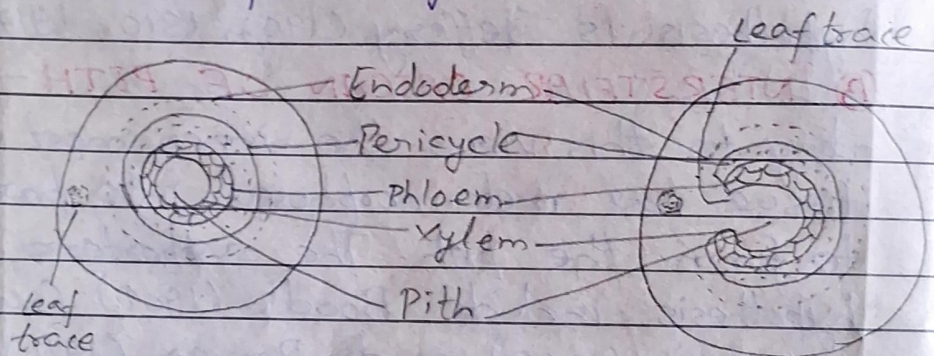 Leaf trace
Endoderm
Pericycle
Phloem
Xylem
Pith
leaf
trace